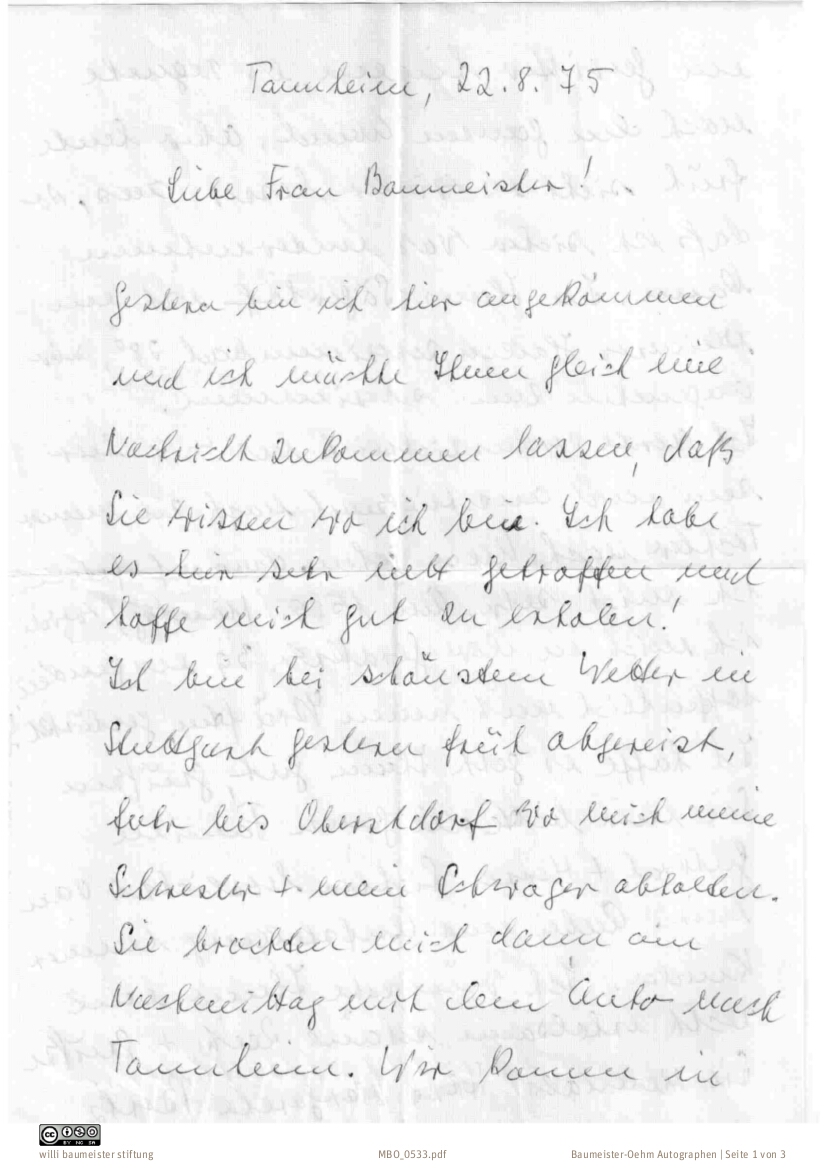 Tannheim, 22.8.75
Liebe Frau Baumeister!
Gestern bin ich hier angekommen
und ich möchte Ihnen gleich eine
Nachricht zukommen lassen, daß
Sie wissen wo ich bin. Ich habe
es hier sehr nett getroffen und
hoffe mich gut zu erholen!
Ich bin bei schönstem Wetter in
Stuttgart gestern früh abgereist,
fuhr bis Oberstdorf wo mich meine
Schwester + mein Schwager abholten.
Sie brachten mich dann am
Nachmittag mit dem Auto nach
Tannheim. Wir kamen in
willi baumeister stiftung
MBO_0533.pdf
Baumeister-Oehm Autographen | Seite 1 von 3